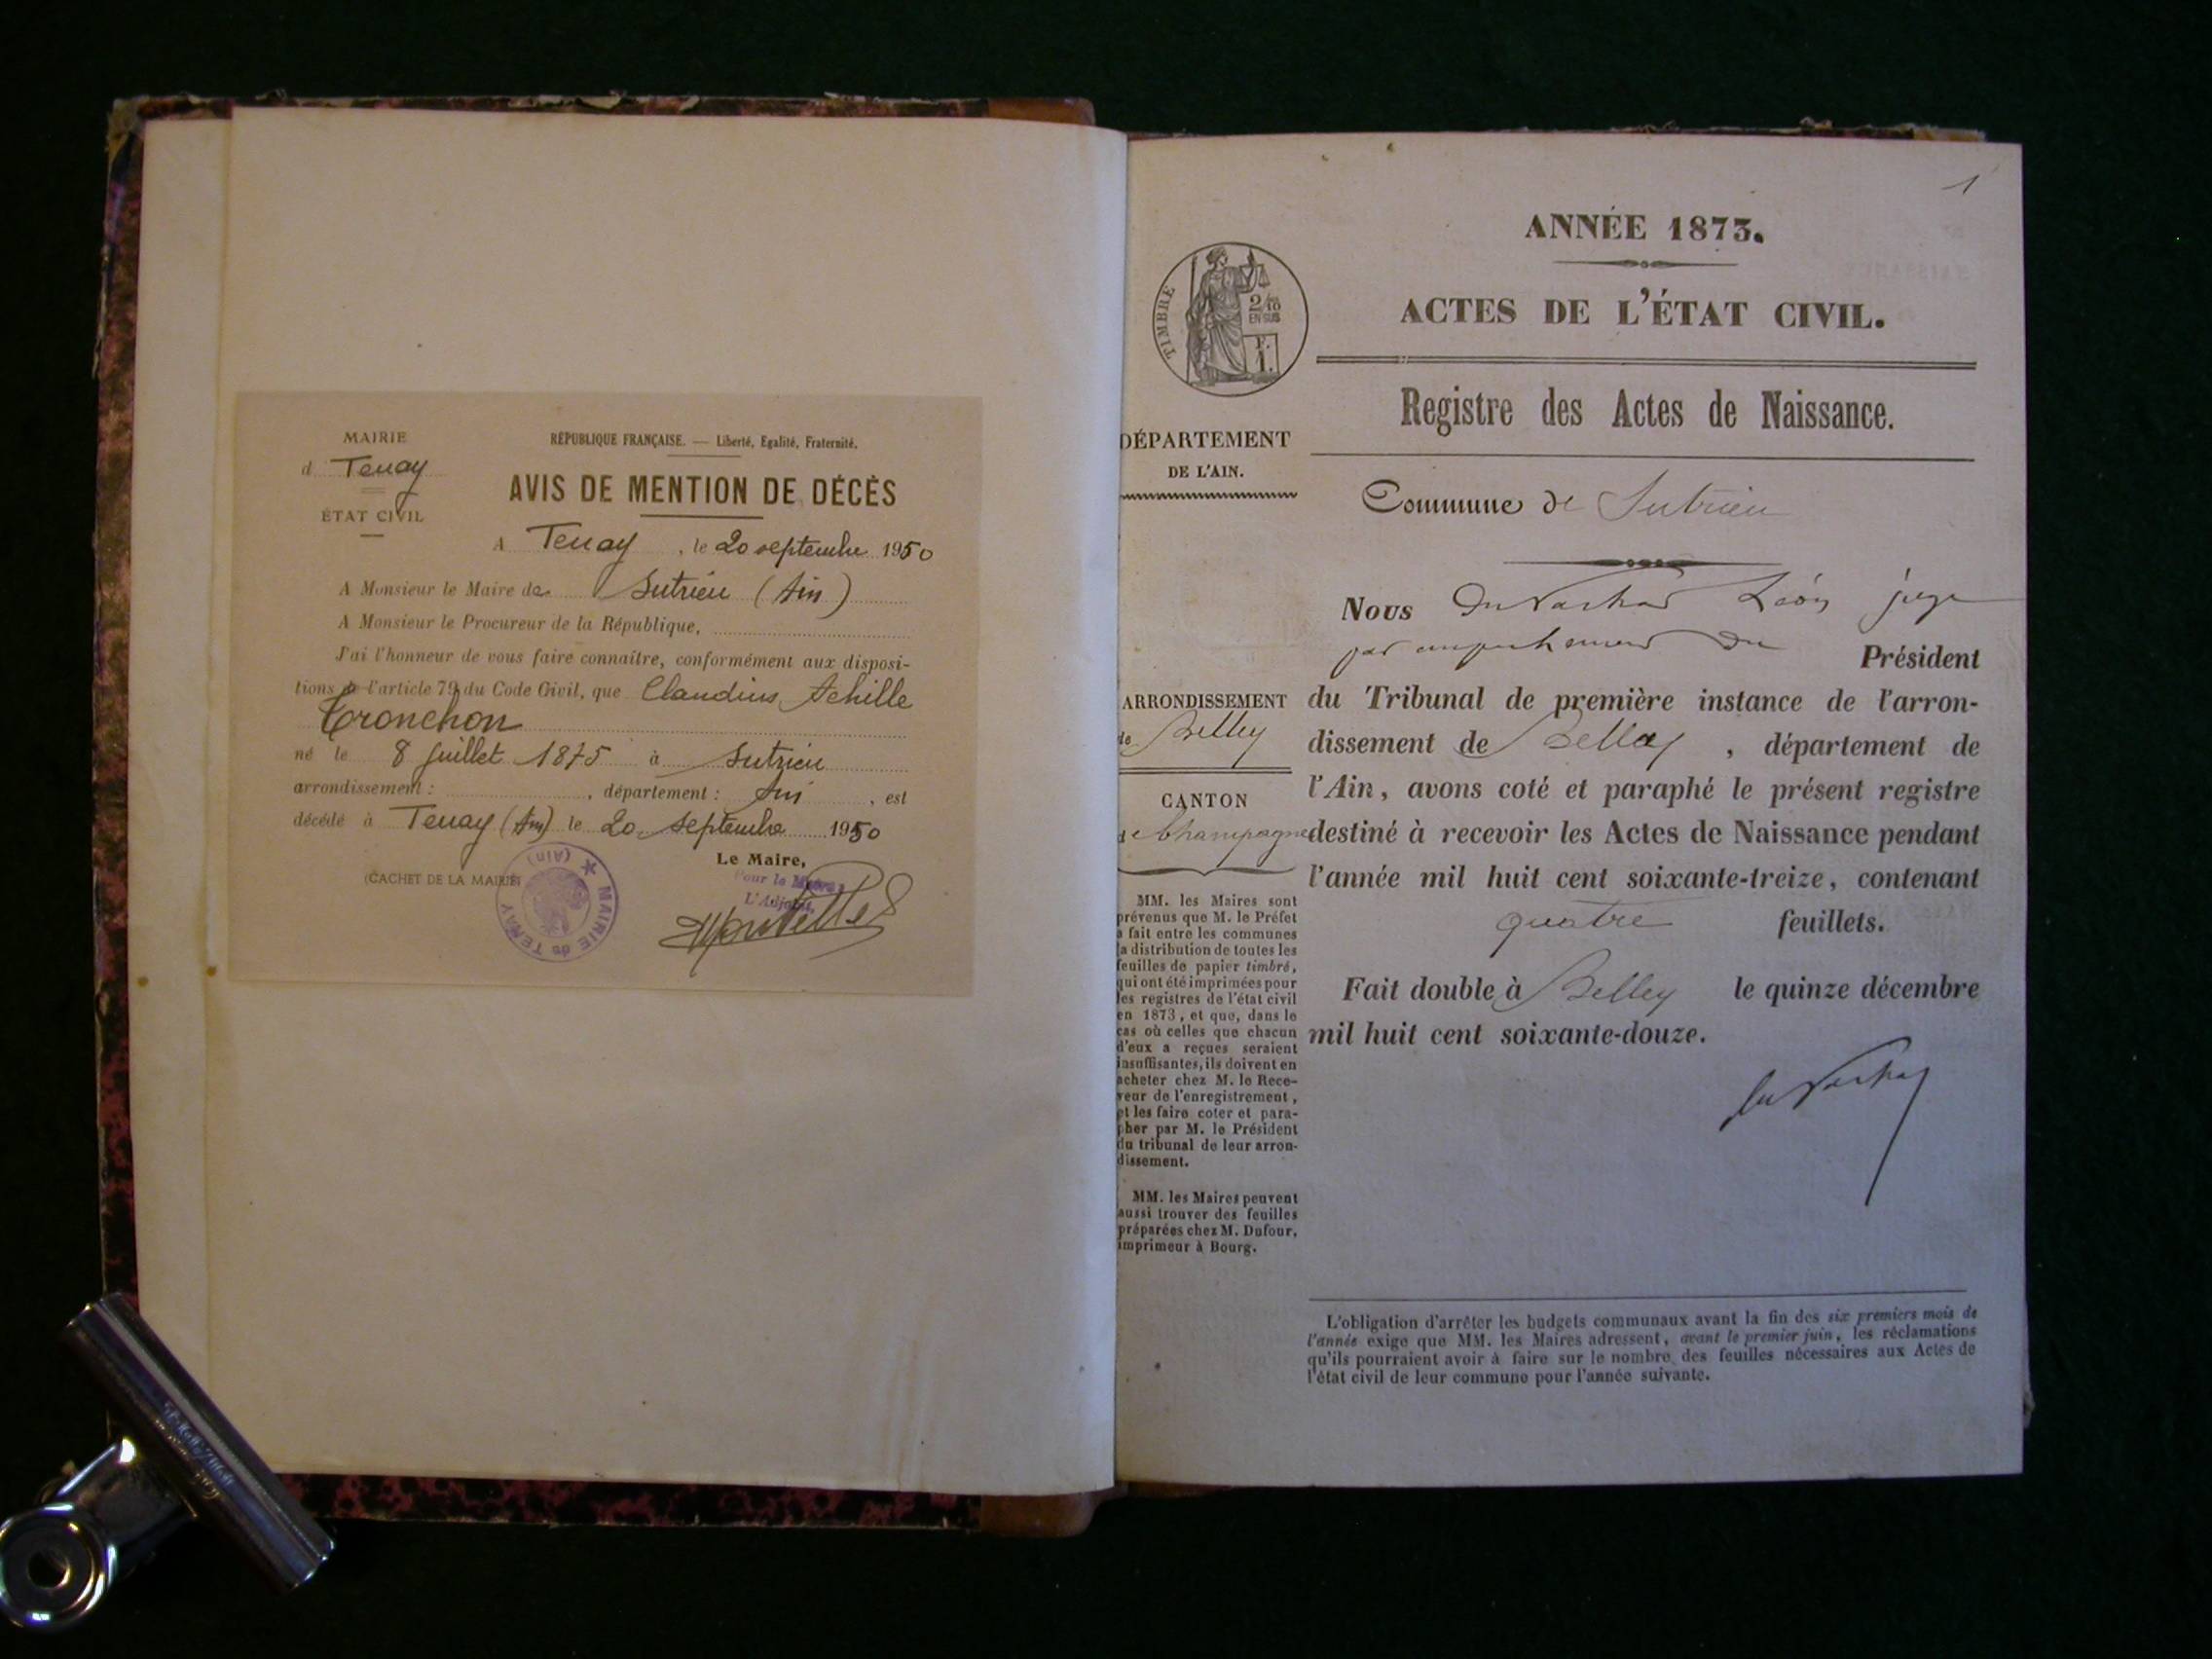 MAIRIE
d Tenay
ÉTAT CIVIL
RÉPUBLIQUE FRANÇAISE. — Liberté, Egalité, Fraternité.
AVIS DE MENTION DE DÉCÈS
A Tenay, le 20 septembre 1950
A Monsieur le Maire de Sutrieu (Ain)
A Monsieur le Procureur de la République,
J'ai l'honneur de vous faire connaître, conformément aux disposi-
tions de l'article 79 du Code Civil, que Claudius Achille
Tronchon
né le 8 juillet 1875 à Sutrieu
arrondissement : , département : Ain , est
décédé à Tenay (Ain) le 20 septembre 1950
Le Maire,
Pour le Maire,
L'Adjoint,
(CACHET DE LA MAIRIE)
MAIRIE de TENAY (Ain)
1
ANNÉE 1873.
ACTES DE L'ÉTAT CIVIL.
TIMBRE
2/10
EN SUS
F.
1.
Registre des Actes de Naissance.
DÉPARTEMENT
DE L'AIN.
Commune de Sutrieu
Nous Léon juge
par empechement du Président
du Tribunal de première instance de l'arron-
dissement de Belley, département de
l'Ain, avons coté et paraphé le présent registre
destiné à recevoir les Actes de Naissance pendant
l'année mil huit cent soixante-treize, contenant
quatre feuillets.
Fait double à Belley le quinze décembre
mil huit cent soixante-douze.
ARRONDISSEMENT
de Belley
CANTON
de Champagne
MM. les Maires sont
prévenus que M. le Préfet
a fait entre les communes
la distribution de toutes les
feuilles de papier timbré,
qui ont été imprimées pour
les registres de l'état civil
en 1873, et que, dans le
cas où celles que chacun
d'eux a reçues seraient
insuffisantes, ils doivent en
acheter chez M. le Rece-
veur de l'enregistrement,
et les faire coter et para-
pher par M. le Président
du tribunal de leur arron-
dissement.
MM. les Maires peuvent
aussi trouver des feuilles
préparées chez M. Dufour,
imprimeur à Bourg.
L'obligation d'arrêter les budgets communaux avant la fin des six premiers mois de
l'année exige que MM. les Maires adressent, avant le premier juin, les réclamations
qu'ils pourraient avoir à faire sur le nombre des feuilles nécessaires aux Actes de
l'état civil de leur commune pour l'année suivante.